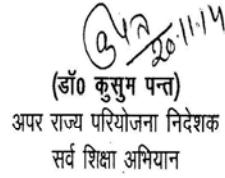 20.11.14
(डॉ0 कुसुम पन्त)
अपर राज्य परियोजना निदेशक
सर्व शिक्षा अभियान